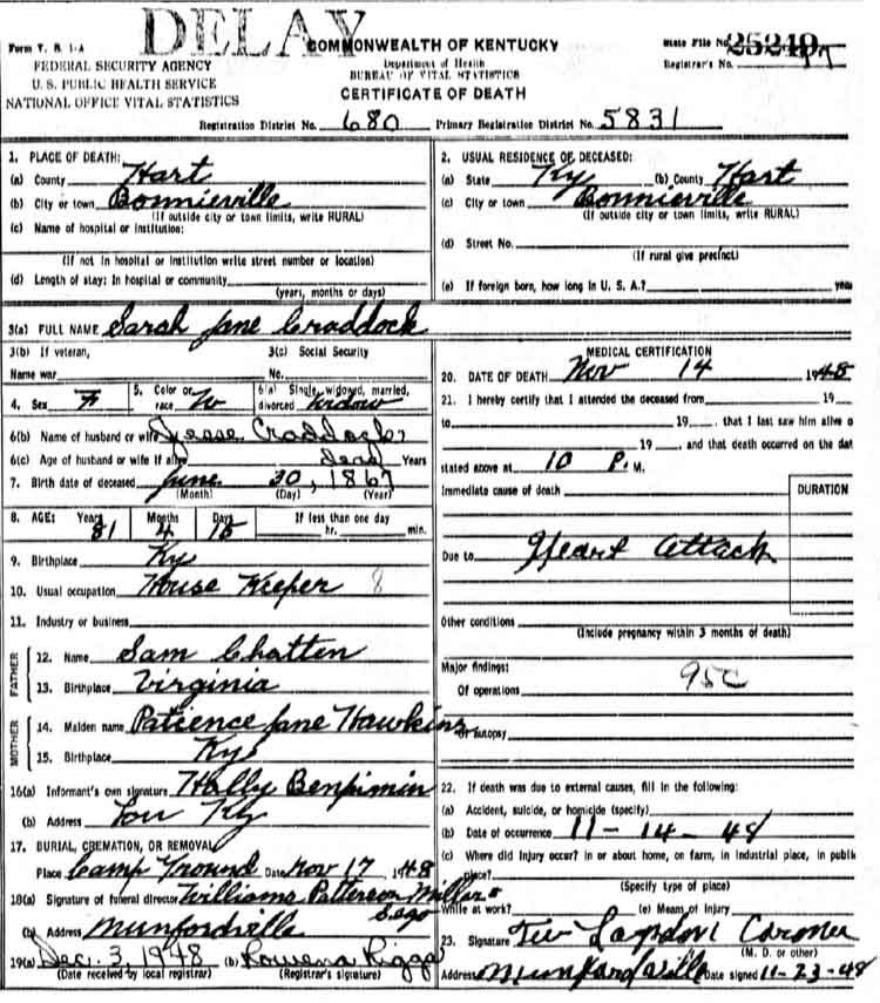 DELAY
Form V. S. 1-A
COMMONWEALTH OF KENTUCKY
State File No. 25249
FEDERAL SECURITY AGENCY
Department of Health
Registrar's No.
U. S. PUBLIC HEALTH SERVICE
BUREAU OF VITAL STATISTICS
NATIONAL OFFICE VITAL STATISTICS
CERTIFICATE OF DEATH
Registration District No. 680 Primary Registration District No. 5831
1. PLACE OF DEATH:
(a) County Hart
(b) City or town Bonnieville
(If outside city or town limits, write RURAL)
(c) Name of hospital or institution:
(If not in hospital or institution write street number or location)
(d) Length of stay: In hospital or community
(years, months or days)
2. USUAL RESIDENCE OF DECEASED:
(a) State Ky (b) County Hart
(c) City or town Bonnieville
(If outside city or town limits, write RURAL)
(d) Street No.
(If rural give precinct)
(e) If foreign born, how long in U. S. A.? years
3(a) FULL NAME Sarah Jane Craddock
3(b) If veteran,
3(c) Social Security
Name war
No.
4. Sex F
5. Color or
race W
6(a) Single, widowed, married,
divorced Widow
6(b) Name of husband or wife Jesse Craddock
6(c) Age of husband or wife if alive dead Years
7. Birth date of deceased June 30, 1867
(Month) (Day) (Year)
8. AGE: Years Months Days If less than one day
81 4 15 hr. min.
9. Birthplace Ky
10. Usual occupation House Keeper 8
11. Industry or business
FATHER
12. Name Sam Chatten
13. Birthplace Virginia
MOTHER
14. Maiden name Patience Jane Hawkins
15. Birthplace Ky
16(a) Informant's own signature Benjimin
(b) Address Lou Ky
17. BURIAL, CREMATION, OR REMOVAL
Place Camp Ground Date Nov 17, 1948
18(a) Signature of funeral director Williams Patterson Miller
(b) Address Munfordville
19(a) Dec. 3, 1948 (b) Rowena Riggs
(Date received by local registrar) (Registrar's signature)
MEDICAL CERTIFICATION
20. DATE OF DEATH Nov 14 1948
21. I hereby certify that I attended the deceased from 19
to 19 , that I last saw him alive o
19 , and that death occurred on the dat
stated above at 10 P. M.
Immediate cause of death
DURATION
Due to Heart Attack
Other conditions
(Include pregnancy within 3 months of death)
Major findings:
Of operations 95C
Of autopsy
22. If death was due to external causes, fill in the following:
(a) Accident, suicide, or homicide (specify)
(b) Date of occurrence 11-14-48
(c) Where did injury occur? in or about home, on farm, in industrial place, in public
place?
(Specify type of place)
While at work? (e) Means of Injury
23. Signature Coroner
(M. D. or other)
Address Munfordville Date signed 11-23-48